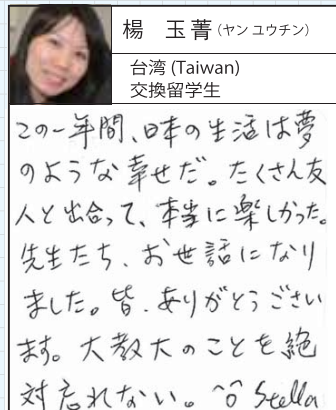 楊　玉菁（ヤン ユウチン）
台湾 (Taiwan)
交換留学生
この一年間、日本の生活は夢
のような幸せだ。たくさん友
人と出合って、本当に楽しかった。
先生たち、お世話になり
ました。皆、ありがとうござい
ます。大教大のことを絶
対忘れない。^o^ Stella